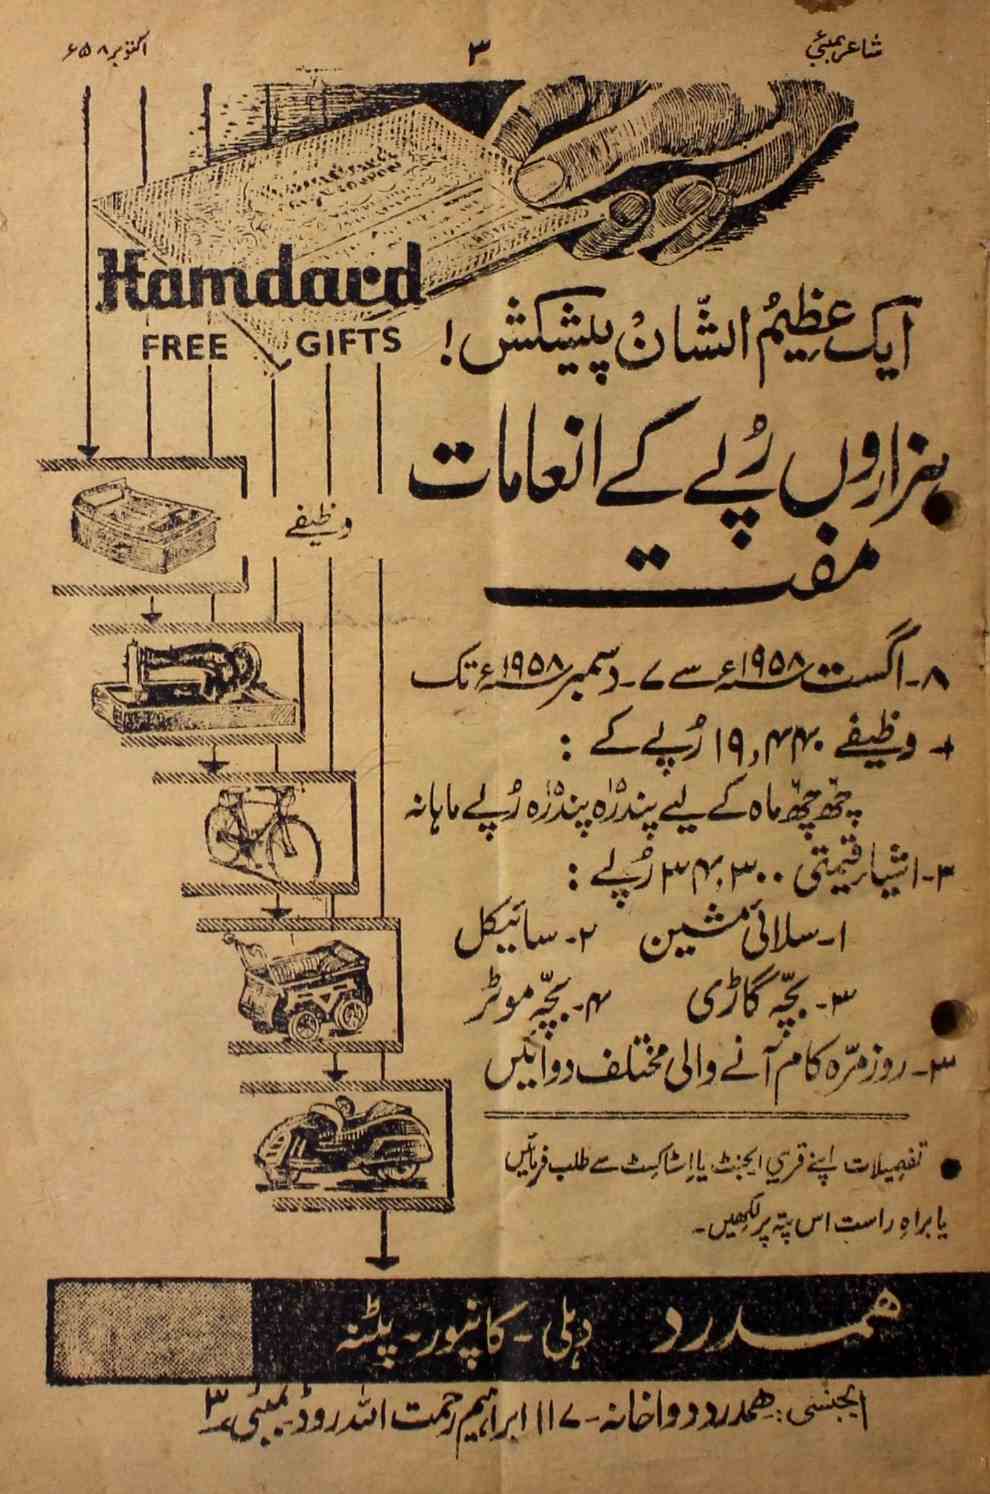 شاعر بمبئی
۳
اکتوبر ۵۸ء
Hamdard
FREE GIFTS
ایک عظیمُ الشّانْ پیشکش!
ہزاروں رُپے کے انعامات
مفت
۸۔اگست ۱۹۵۸ء سے ۷۔دسمبر ۱۹۵۸ء تک
وظیفے
وظیفے ۱۹,۴۴۰ رُپے کے :
چھ چھ ماہ کے لیے پندرہ پندرہ رُپے ماہانہ
اشیار قیمتی ۳۴,۳۰۰ رُپے :
۱۔سلائی مشین ۲۔سائیکل
۳۔بچّہ گاڑی ۴۔بچّہ موٹر
۳۔روزمرّہ کام آنے والی مختلف دوائیں
● تفصیلات اپنے قریبی ایجنٹ یا اِسٹاکسٹ سے طلب فرمائیں
یا براہِ راست اس پتہ پر لکھیں۔
ہمدرد دہلی۔کانپور۔پٹنہ
ایجنسی: ہمدرد دواخانہ۔۱۱۷ ابراہیم رحمت اللہ روڈ۔بمبئی ۳